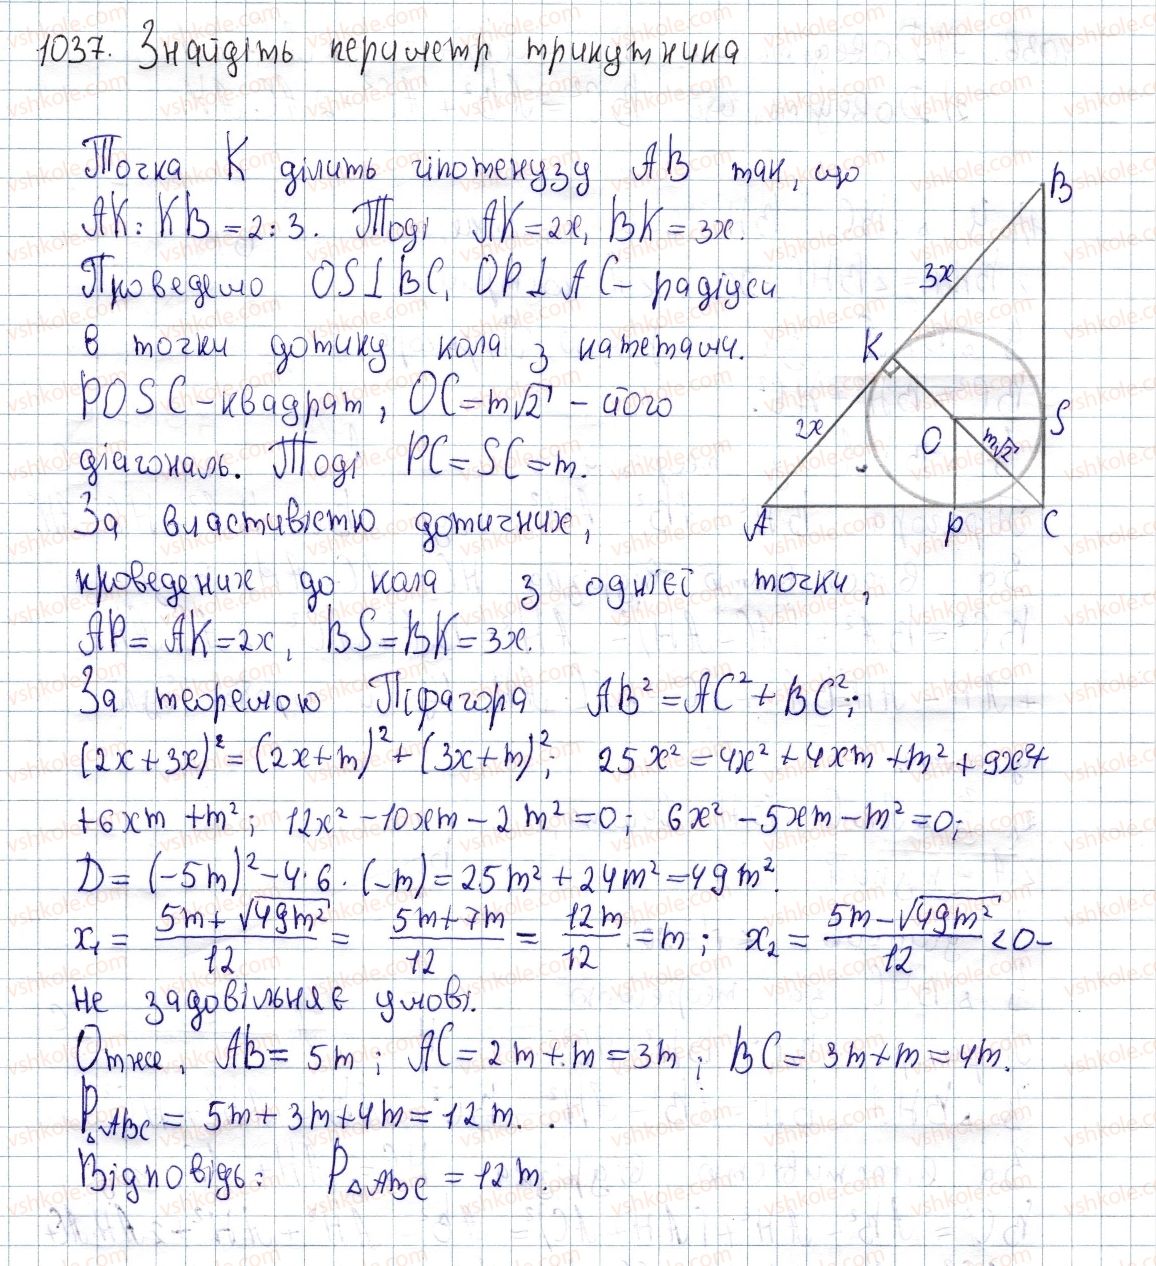 1037. Знайдіть периметр трикутника
Точка К ділить гіпотенузу АВ так, що
АК : КВ = 2 : 3. Тоді АК = 2x, ВК = 3x.
Проведемо OS⊥BC, OP⊥AC – радіуси
в точки дотику кола з катетами.
POSC – квадрат, OC = m√2 – його
діагональ. Тоді PC = SC = m.
За властивістю дотичних,
проведених до кола з однієї точки,
AP = AK = 2x, BS = BK = 3x.
За теоремою Піфагора AB² = AC² + BC²;
(2x + 3x)² = (2x + m)² + (3x + m)²; 25x² = 4x² + 4xm + m² + 9x² +
+ 6xm + m²; 12x² – 10xm – 2m² = 0; 6x² – 5xm – m² = 0;
D = (–5m)² – 4·6·(–m) = 25m² + 24m² = 49m².
x₁ = (5m + √49m²)/12 = (5m + 7m)/12 = 12m/12 = m; x₂ = (5m – √49m²)/12 < 0 –
не задовільняє умові.
Отже, AB = 5m; AC = 2m + m = 3m; BC = 3m + m = 4m.
P△ABC = 5m + 3m + 4m = 12m.
Відповідь: P△ABC = 12m.
B
3x
K
2x
O
m√2
S
A
P
C
vshkole.com